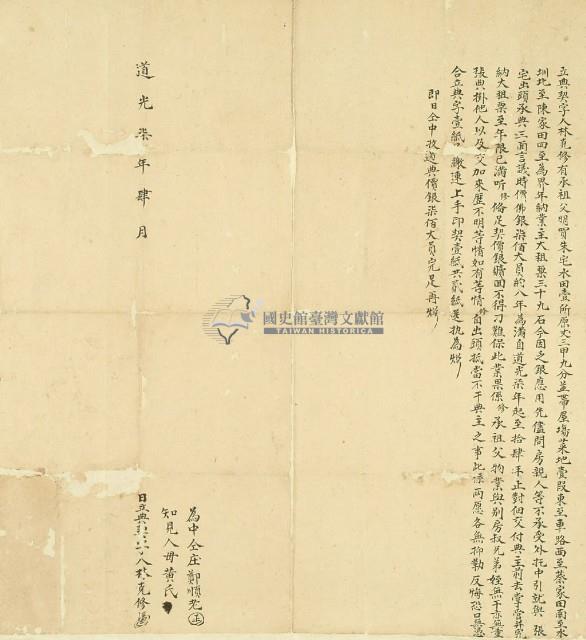 立典契字人林克修有承祖父明買朱宅水田壹所原丈三甲九分並帶屋場菜地壹段東至車路西至蔡家田南至水
圳北至陳家田四至為界年納業主大租粟三十九石今因乏銀應用先儘問房親人等不承受外托中引就與張
宅出頭承典三面言議時價佛銀柒佰大員約八年為滿自道光柒年起至拾肆年止對佃交付典主前去掌管
納大租粟至年限已滿听修俻足契價銀贖回不得刁難保此業果係修承祖父物業與別房叔兄弟姪無干亦無重
張典掛他人以及交加來歷不明等情如有等情修自出頭抵當不干典主之事此係兩愿各無抑勒反悔恐口無憑
合立典字壹紙繳連上手印契壹紙共貳紙送执為炤
即日仝中收過典價銀柒佰大員完足再炤
道光柒年肆月
為中仝庄鄭順老
知見人母黃氏
日立典契字人林克修
國史館臺灣文獻館
TAIWAN HISTORICA